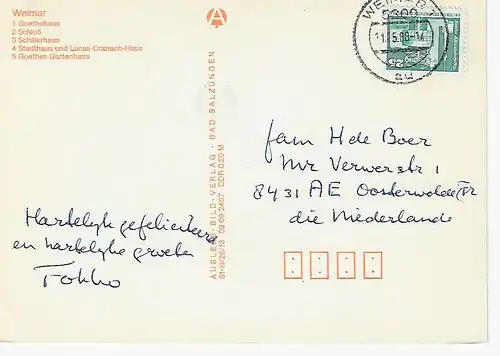 Weimar
1 Goethehaus
2 Schloß
3 Schillerhaus
4 Stadthaus und Lucas-Cranach-Haus
5 Goethes Gartenhaus
A
WEIMAR
5300
au
25
AUSLESE-BILD-VERLAG · BAD SALZUNGEN
09 09 2467 DDR 0,20 M
fam H de Boer
Mr Verwerstr 1
8431 AE Oosterwolde Fr
die Niederlande
Hartelijk gefeliciteerd
en hartelijke groeten
Fokko